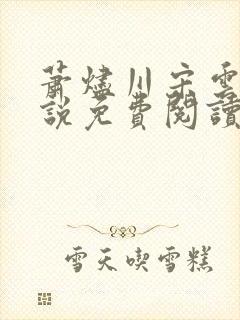 蕭燼川宋雲
說免費閱讀
雪天喫雪糕